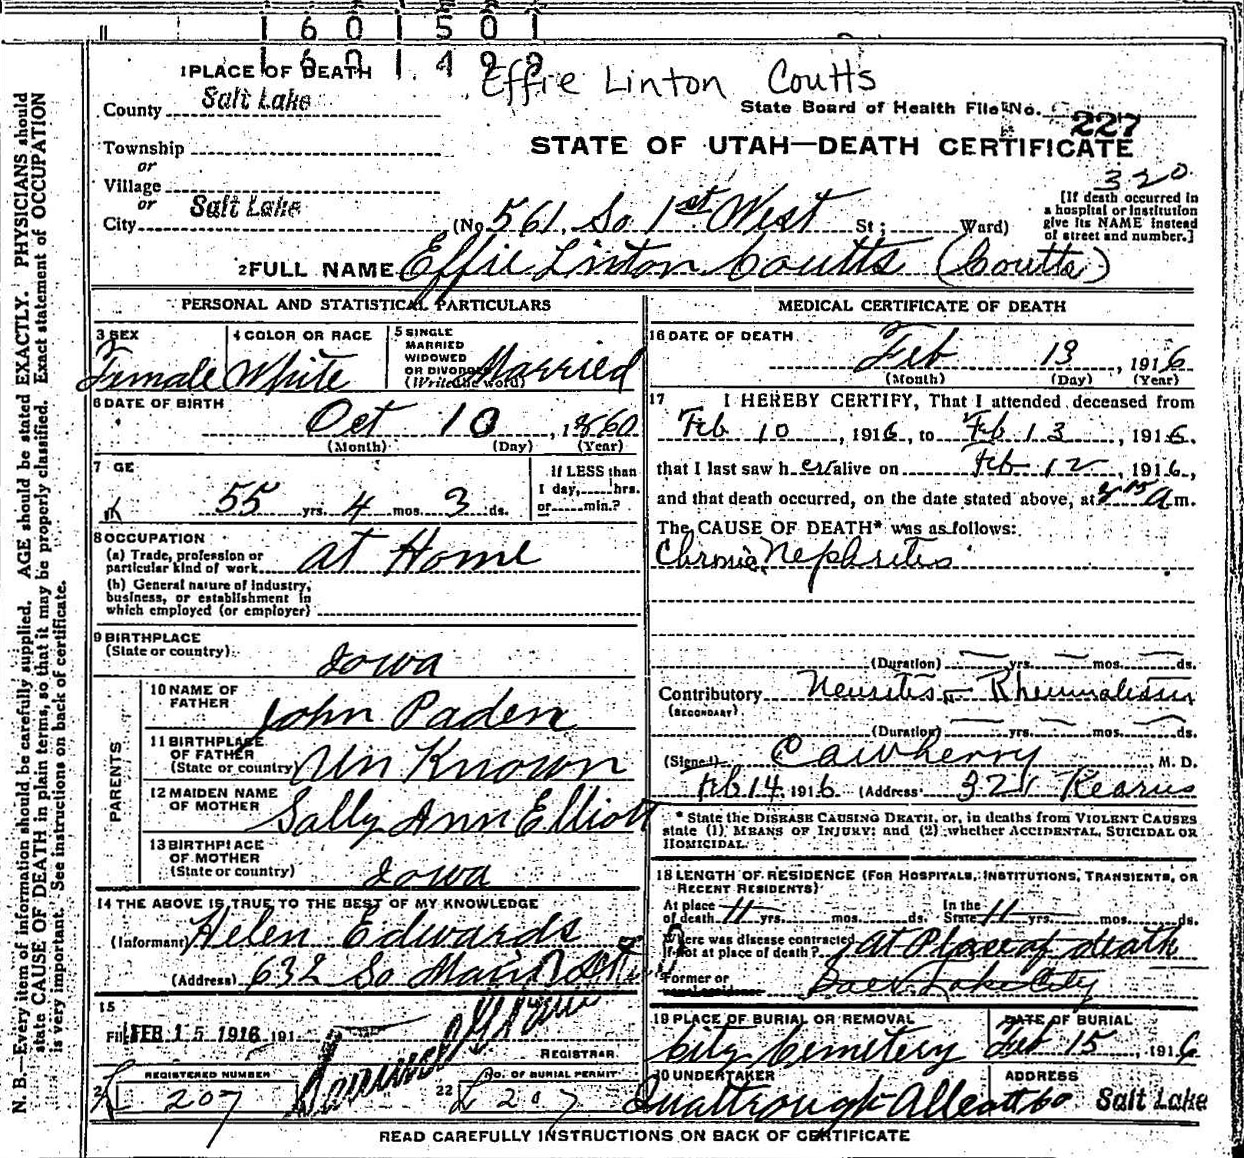 1 6 0 1 5 0 1
1 6 0 1 4 9 8
Effie Linton Coutts
1 PLACE OF DEATH
County Salt Lake
State Board of Health File No. 227
Township
STATE OF UTAH—DEATH CERTIFICATE
or
Village
320
or
City Salt Lake
(No. 561 So 1st West St; Ward)
[If death occurred in
a hospital or institution
give its NAME instead
of street and number.]
2 FULL NAME Effie Linton Coutts (Coutts)
PERSONAL AND STATISTICAL PARTICULARS
3 SEX Female
4 COLOR OR RACE White
5 SINGLE
MARRIED
WIDOWED
OR DIVORCED
(Write the word) Married
6 DATE OF BIRTH
Oct 10, 1860
(Month) (Day) (Year)
7 GE
55 yrs. 4 mos. 3 ds.
If LESS than
1 day, hrs.
or min.?
8 OCCUPATION
(a) Trade, profession or
particular kind of work at Home
(b) General nature of industry,
business, or establishment in
which employed (or employer)
9 BIRTHPLACE
(State or country) Iowa
PARENTS
10 NAME OF
FATHER John Paden
11 BIRTHPLACE
OF FATHER
(State or country) Un Known
12 MAIDEN NAME
OF MOTHER Sally Ann Elliott
13 BIRTHPLACE
OF MOTHER
(State or country) Iowa
14 THE ABOVE IS TRUE TO THE BEST OF MY KNOWLEDGE
(Informant) Helen Edwards
(Address) 632 So Main
15
Filed FEB 15 1916 191
REGISTRAR
REGISTERED NUMBER
207
22 NO. OF BURIAL PERMIT
207
MEDICAL CERTIFICATE OF DEATH
16 DATE OF DEATH
Feb 13, 1916
(Month) (Day) (Year)
17 I HEREBY CERTIFY, That I attended deceased from
Feb 10, 1916, to Feb 13, 1916.
that I last saw her alive on Feb 12, 1916,
and that death occurred, on the date stated above, at 15 a m.
The CAUSE OF DEATH* was as follows:
Chronic Nephritis
(Duration) yrs. mos. ds.
Contributory Neuritis Rheumatism
(SECONDARY)
(Duration) yrs. mos. ds.
(Signed) M. D.
Feb 14 1916 (Address) Kearns
* State the DISEASE CAUSING DEATH, or, in deaths from VIOLENT CAUSES
state (1) MEANS OF INJURY; and (2) whether ACCIDENTAL, SUICIDAL OR
HOMICIDAL.
18 LENGTH OF RESIDENCE (FOR HOSPITALS, INSTITUTIONS, TRANSIENTS, OR
RECENT RESIDENTS)
At place
of death 11 yrs. mos. ds.
In the
State 11 yrs. mos. ds.
Where was disease contracted
if not at place of death? At Place of death
Former or
usual residence Lake City
19 PLACE OF BURIAL OR REMOVAL
City Cemetery
DATE OF BURIAL
Feb 15, 1916
20 UNDERTAKER
ADDRESS
Salt Lake
READ CAREFULLY INSTRUCTIONS ON BACK OF CERTIFICATE
N. B.—Every item of information should be carefully supplied. AGE should be stated EXACTLY. PHYSICIANS should
state CAUSE OF DEATH in plain terms, so that it may be properly classified. Exact statement of OCCUPATION
is very important. See instructions on back of certificate.